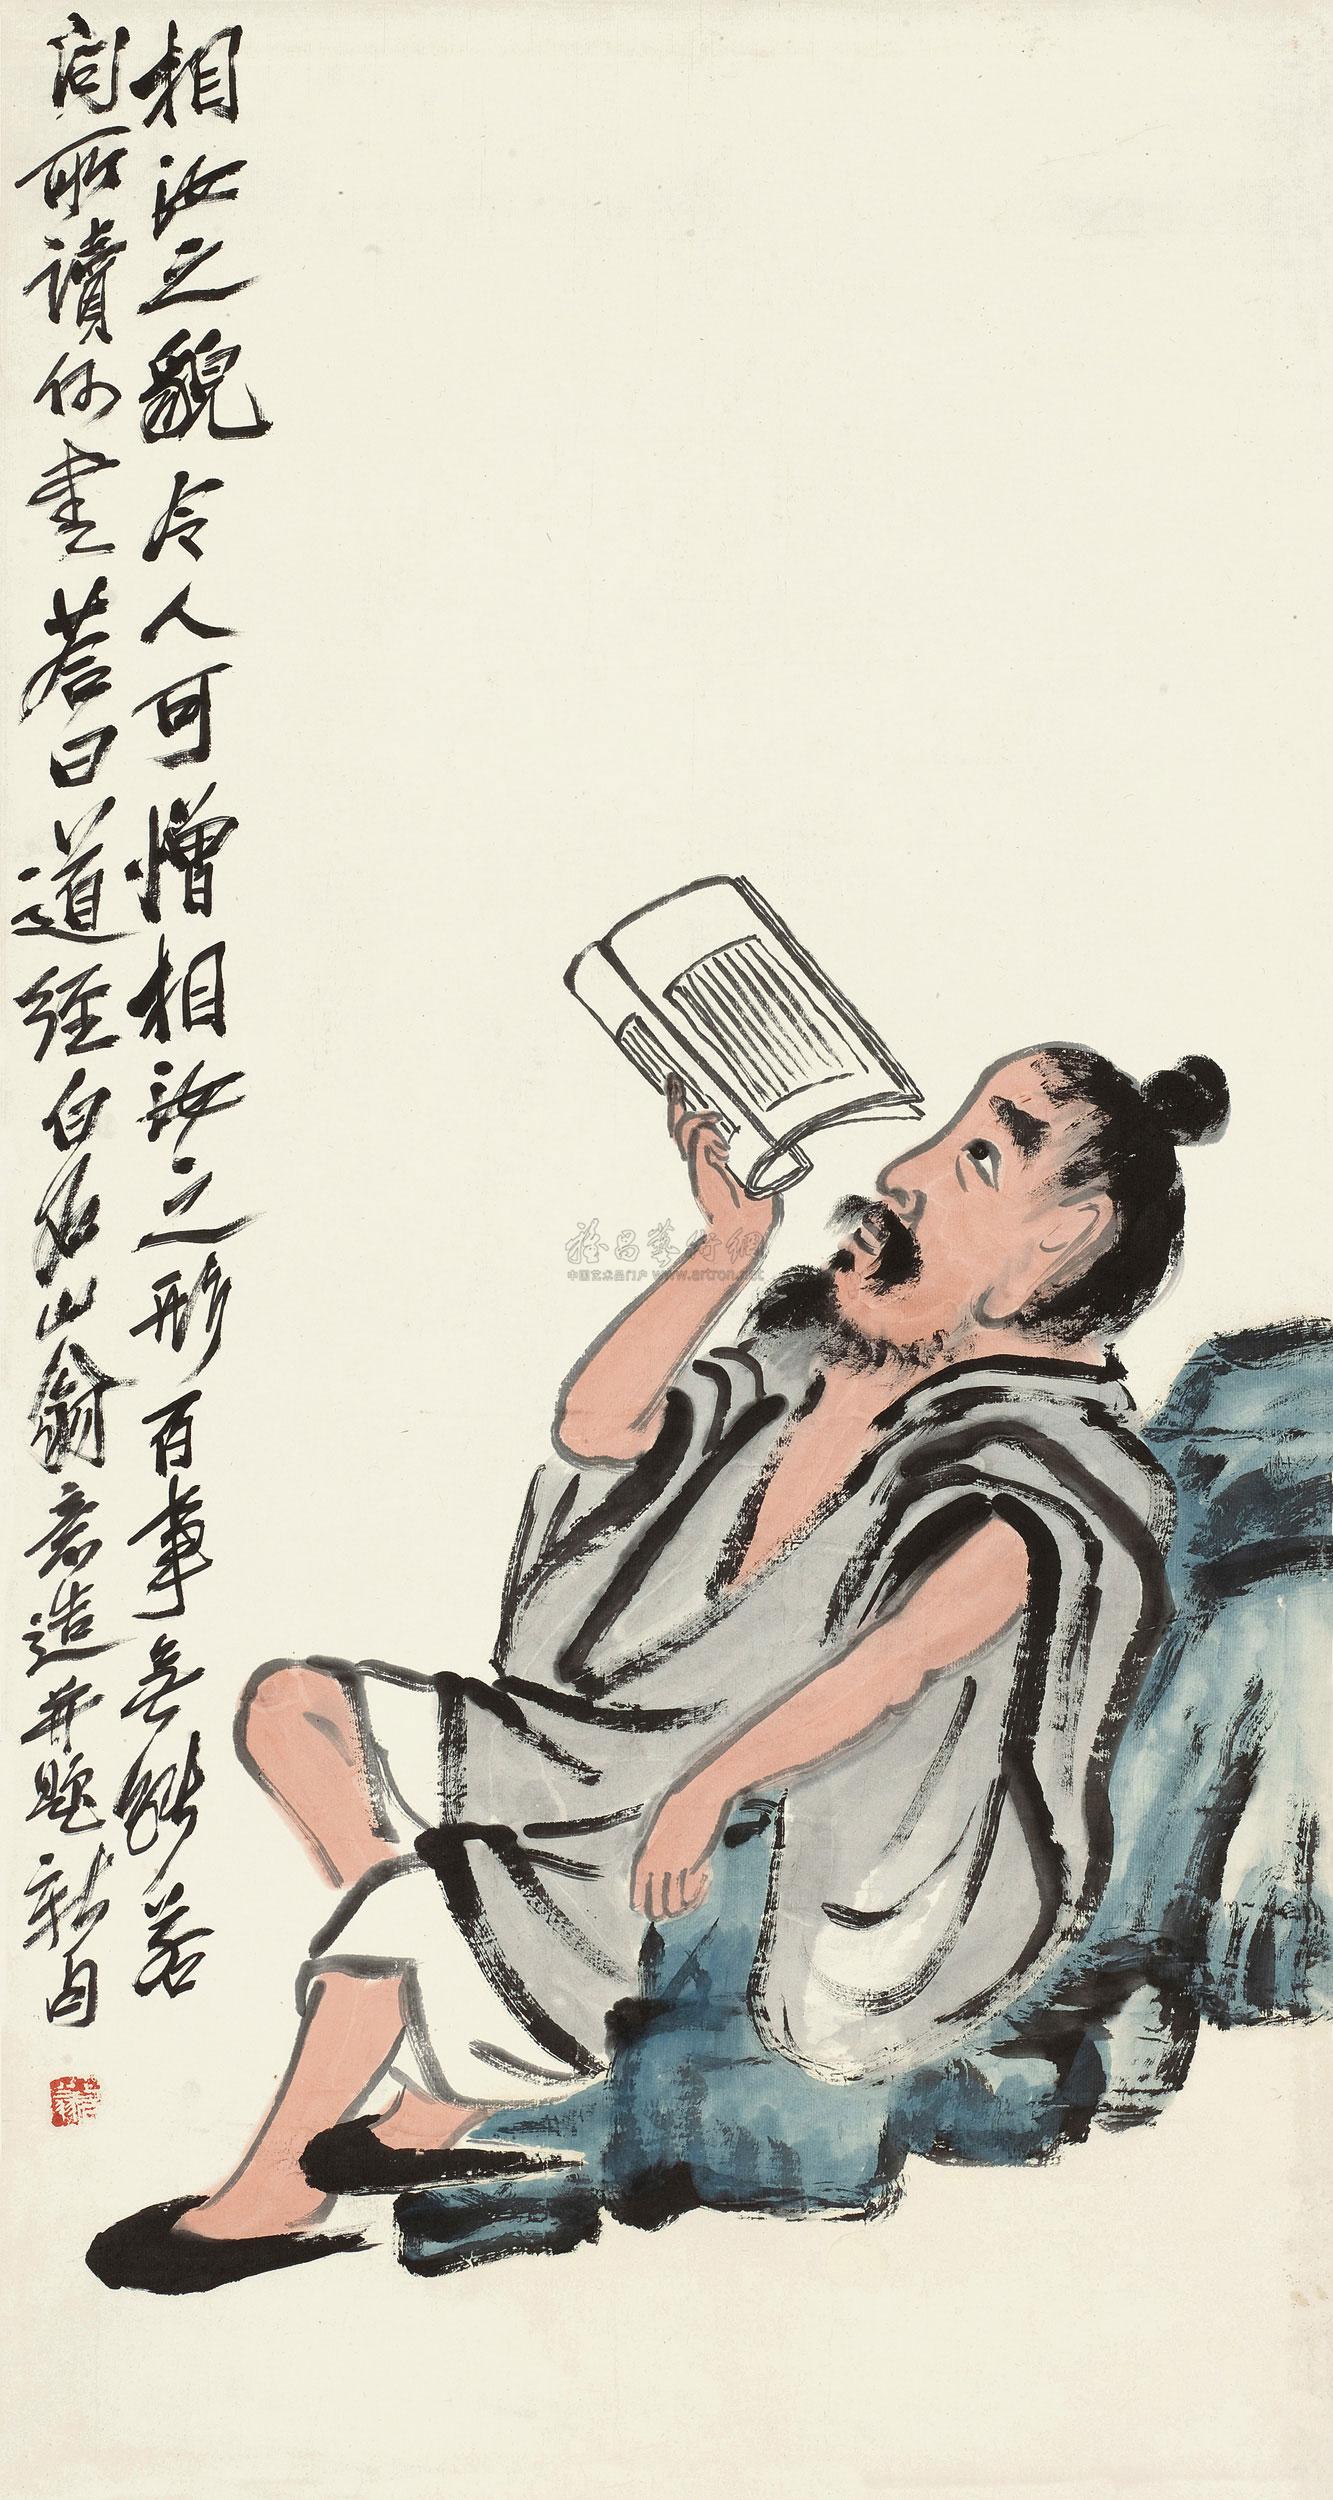 相汝之貌令人可憎相汝之形百事無能若
問所讀何書答曰道經白石山翁意造并題新句
雅昌藝術網
中国艺术品门户 www.artron.net